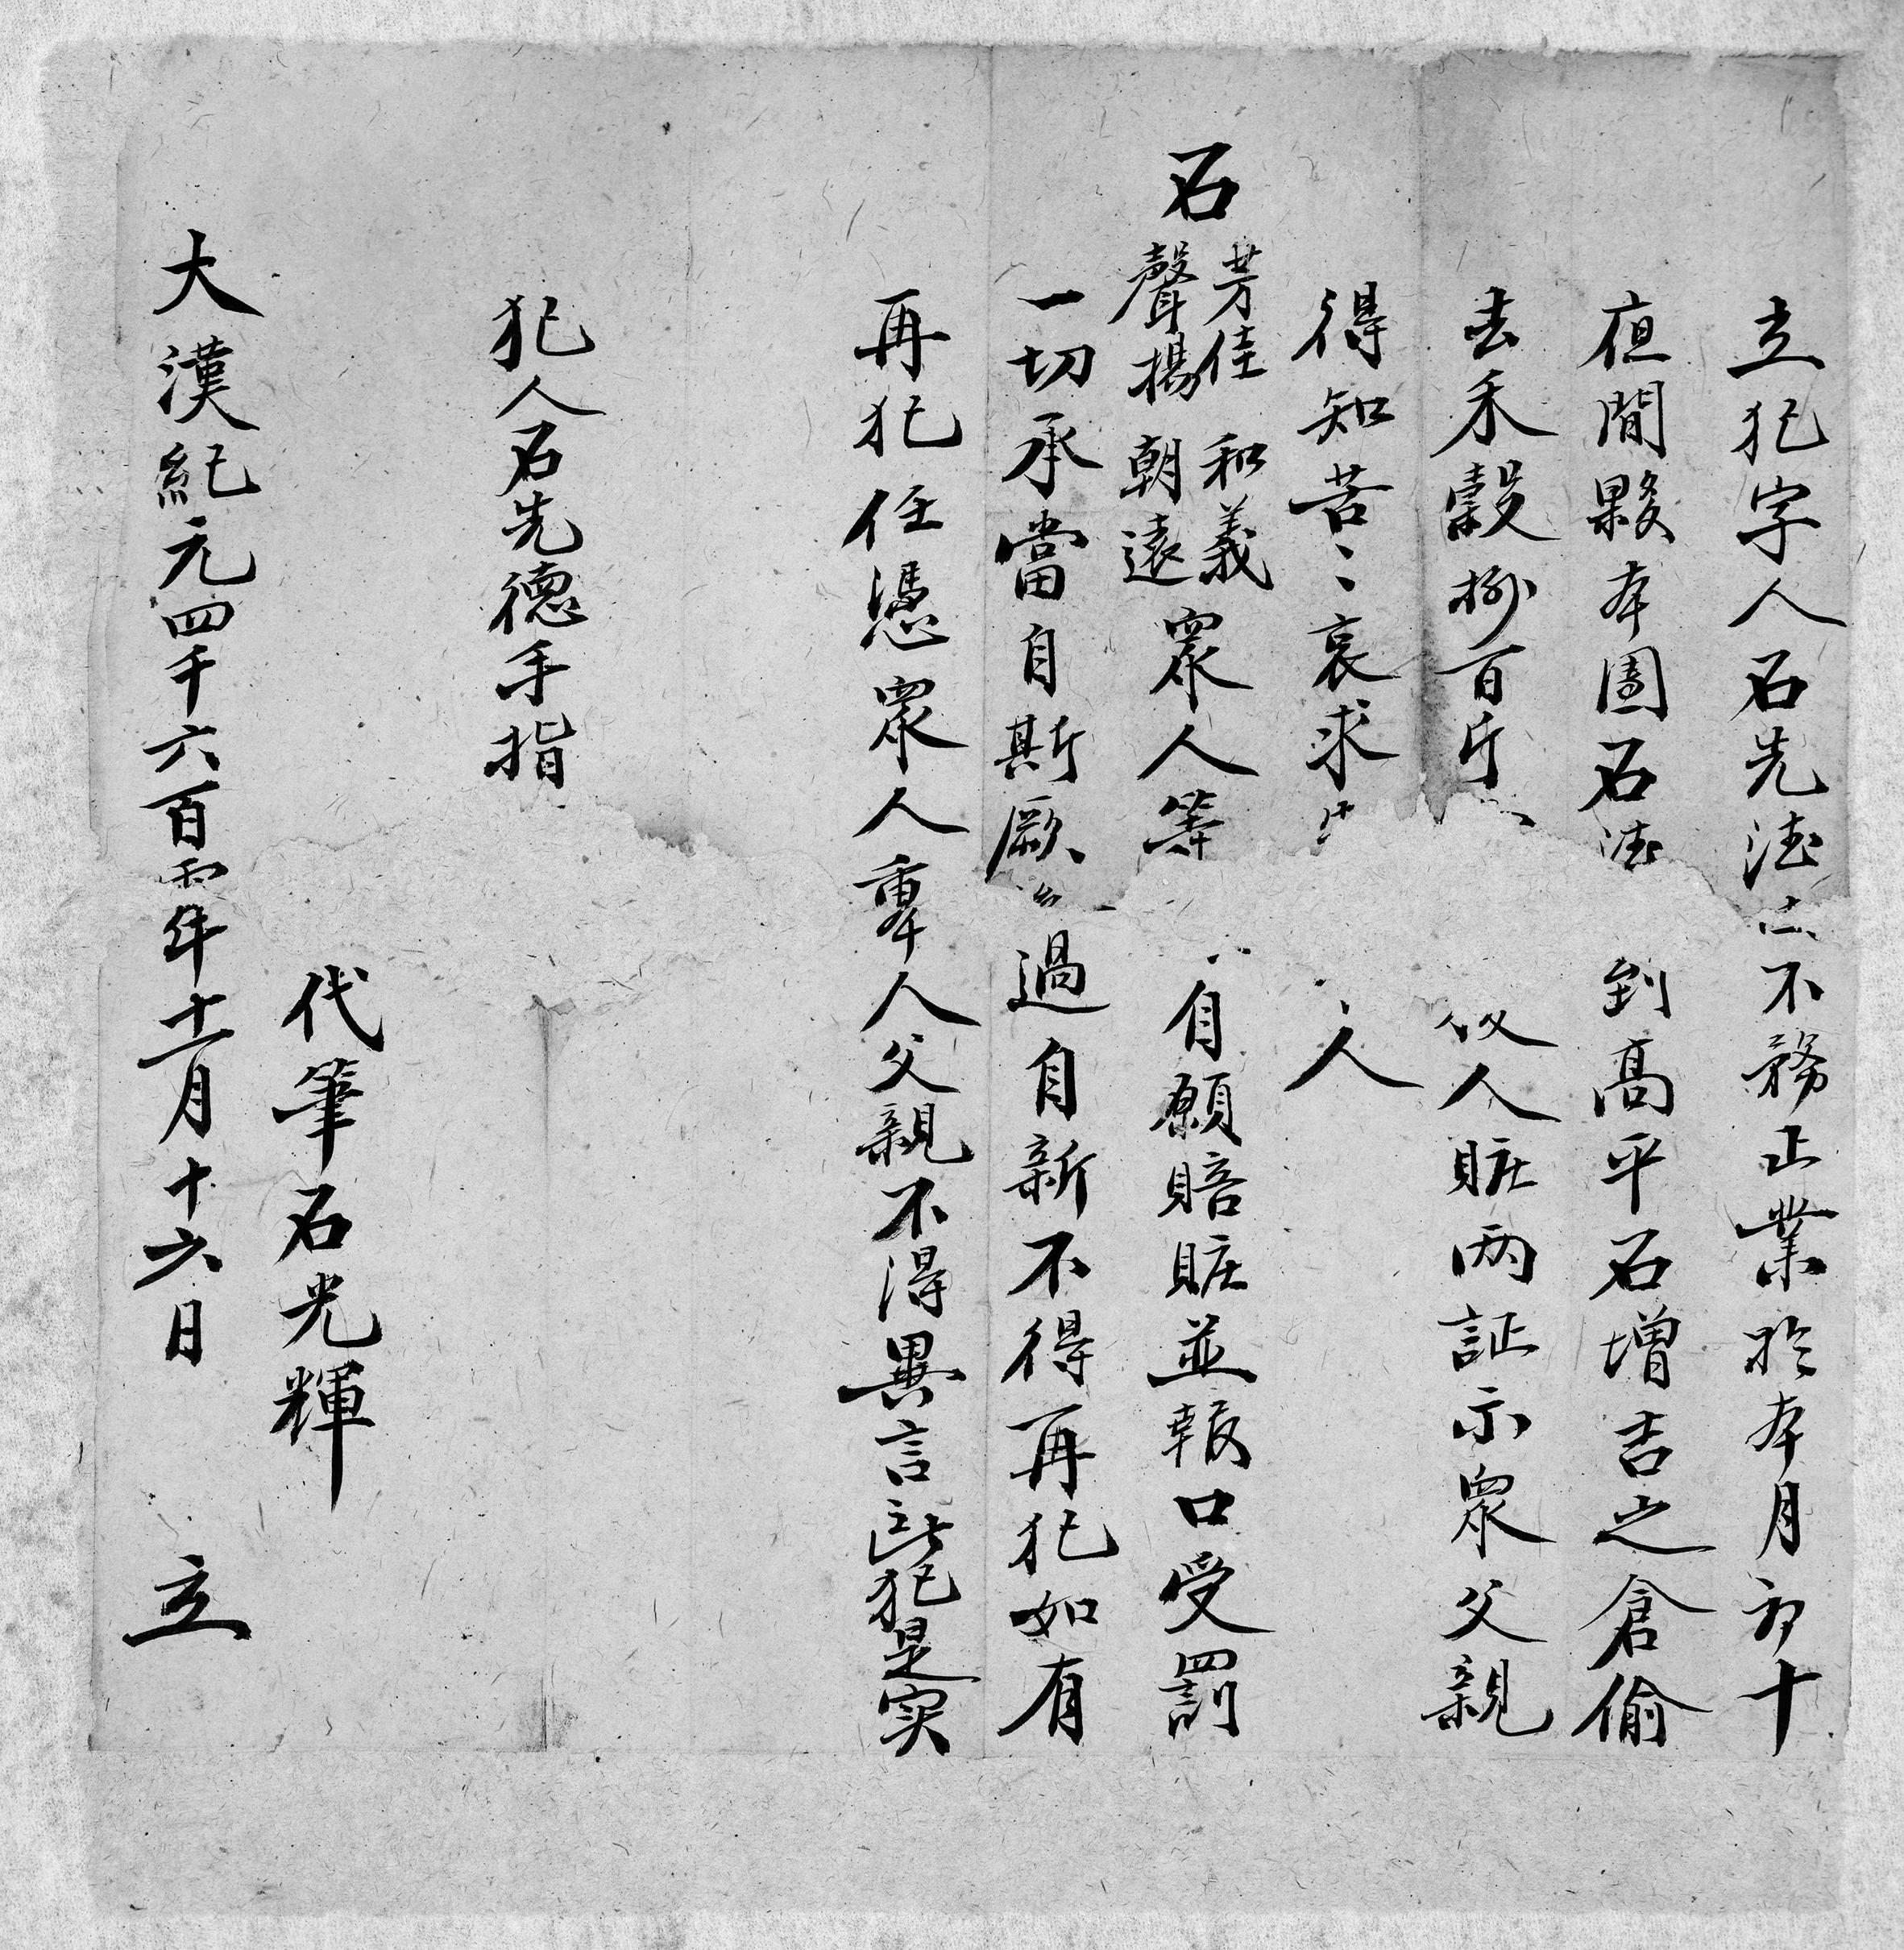 立犯字人石先德不務正業於本月初十
夜間夥本團石法到高平石增吉之倉偷
去禾穀捌百斤人賍兩証示眾父親
得知苦〻哀求人
石芳佳和義
聲揚朝遠眾人等自願賠賍並報口受罰
一切承當自斯厥過自新不得再犯如有
再犯任憑眾人重辜人父親不得異言立此犯是实
犯人石先德手指
代筆石光輝
大漢紀元四千六百零年十一月十六日立